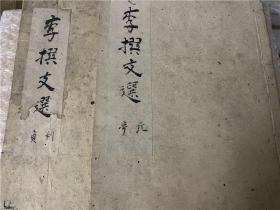 李撰文選
元亨
李撰文選
利貞